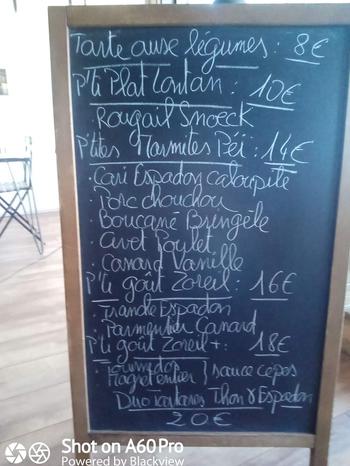 Tarte aux légumes : 8€
P'ti Plat Lontan : 10€
Rougail Smoeck
P'tites Marmites Péi : 14€
Cari Espadon caloupilé
Porc chouchou
Boucané Bringèle
Civet Poulet
Canard Vanille
P'ti goût Zoreil : 16€
Viande Espadon
Parmentier Canard
P'ti goût Zoreil + : 18€
Tournedos
Magret entier } sauce cèpes
Duo Thon & Espadon
20€
Shot on A60Pro
Powered by Blackview